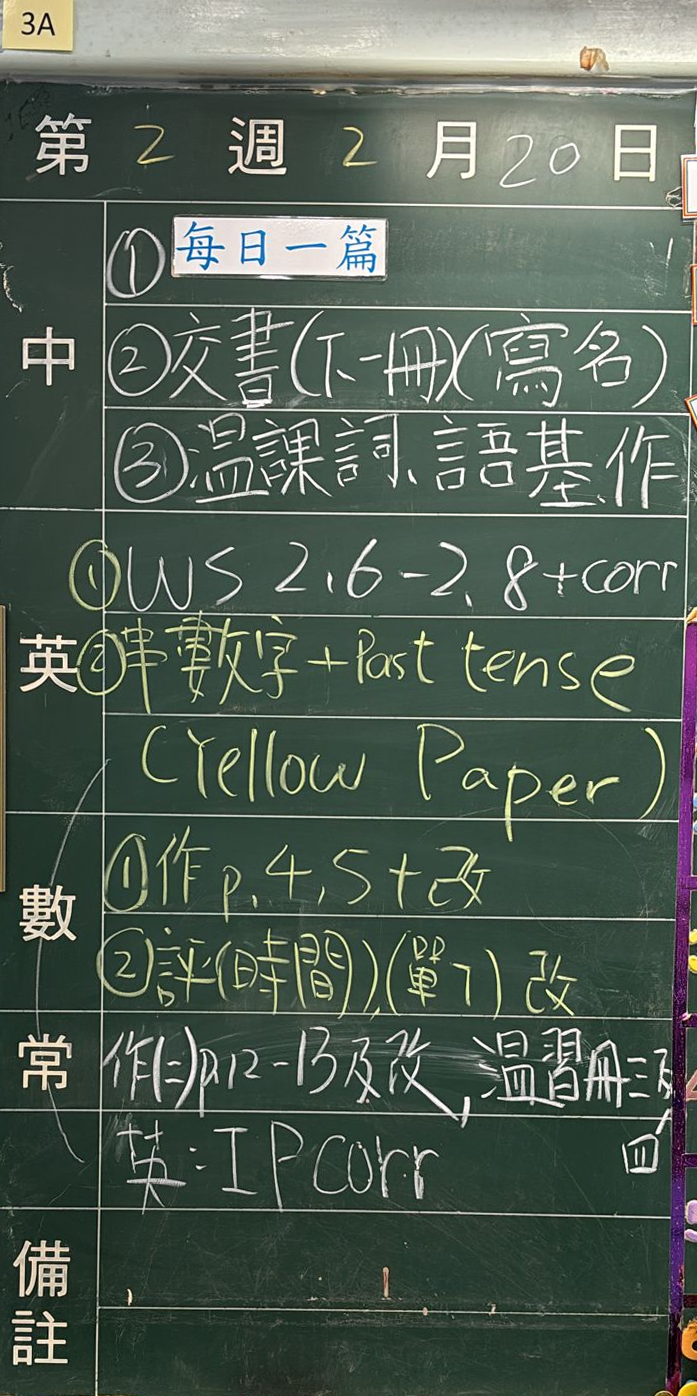 3A
第 2 週 2 月 20 日
中
① 每日一篇
② 交書(下一冊)(寫名)
③ 温課詞、語基、作
英
① WS 2.6-2.8+corr
② 串數字+Past tense
(Yellow Paper)
數
① 作p.4,5+改
② 評(時間),(單7)改
常
作(二)p.12-13及改,温習冊三及四
英:IP corr
備註